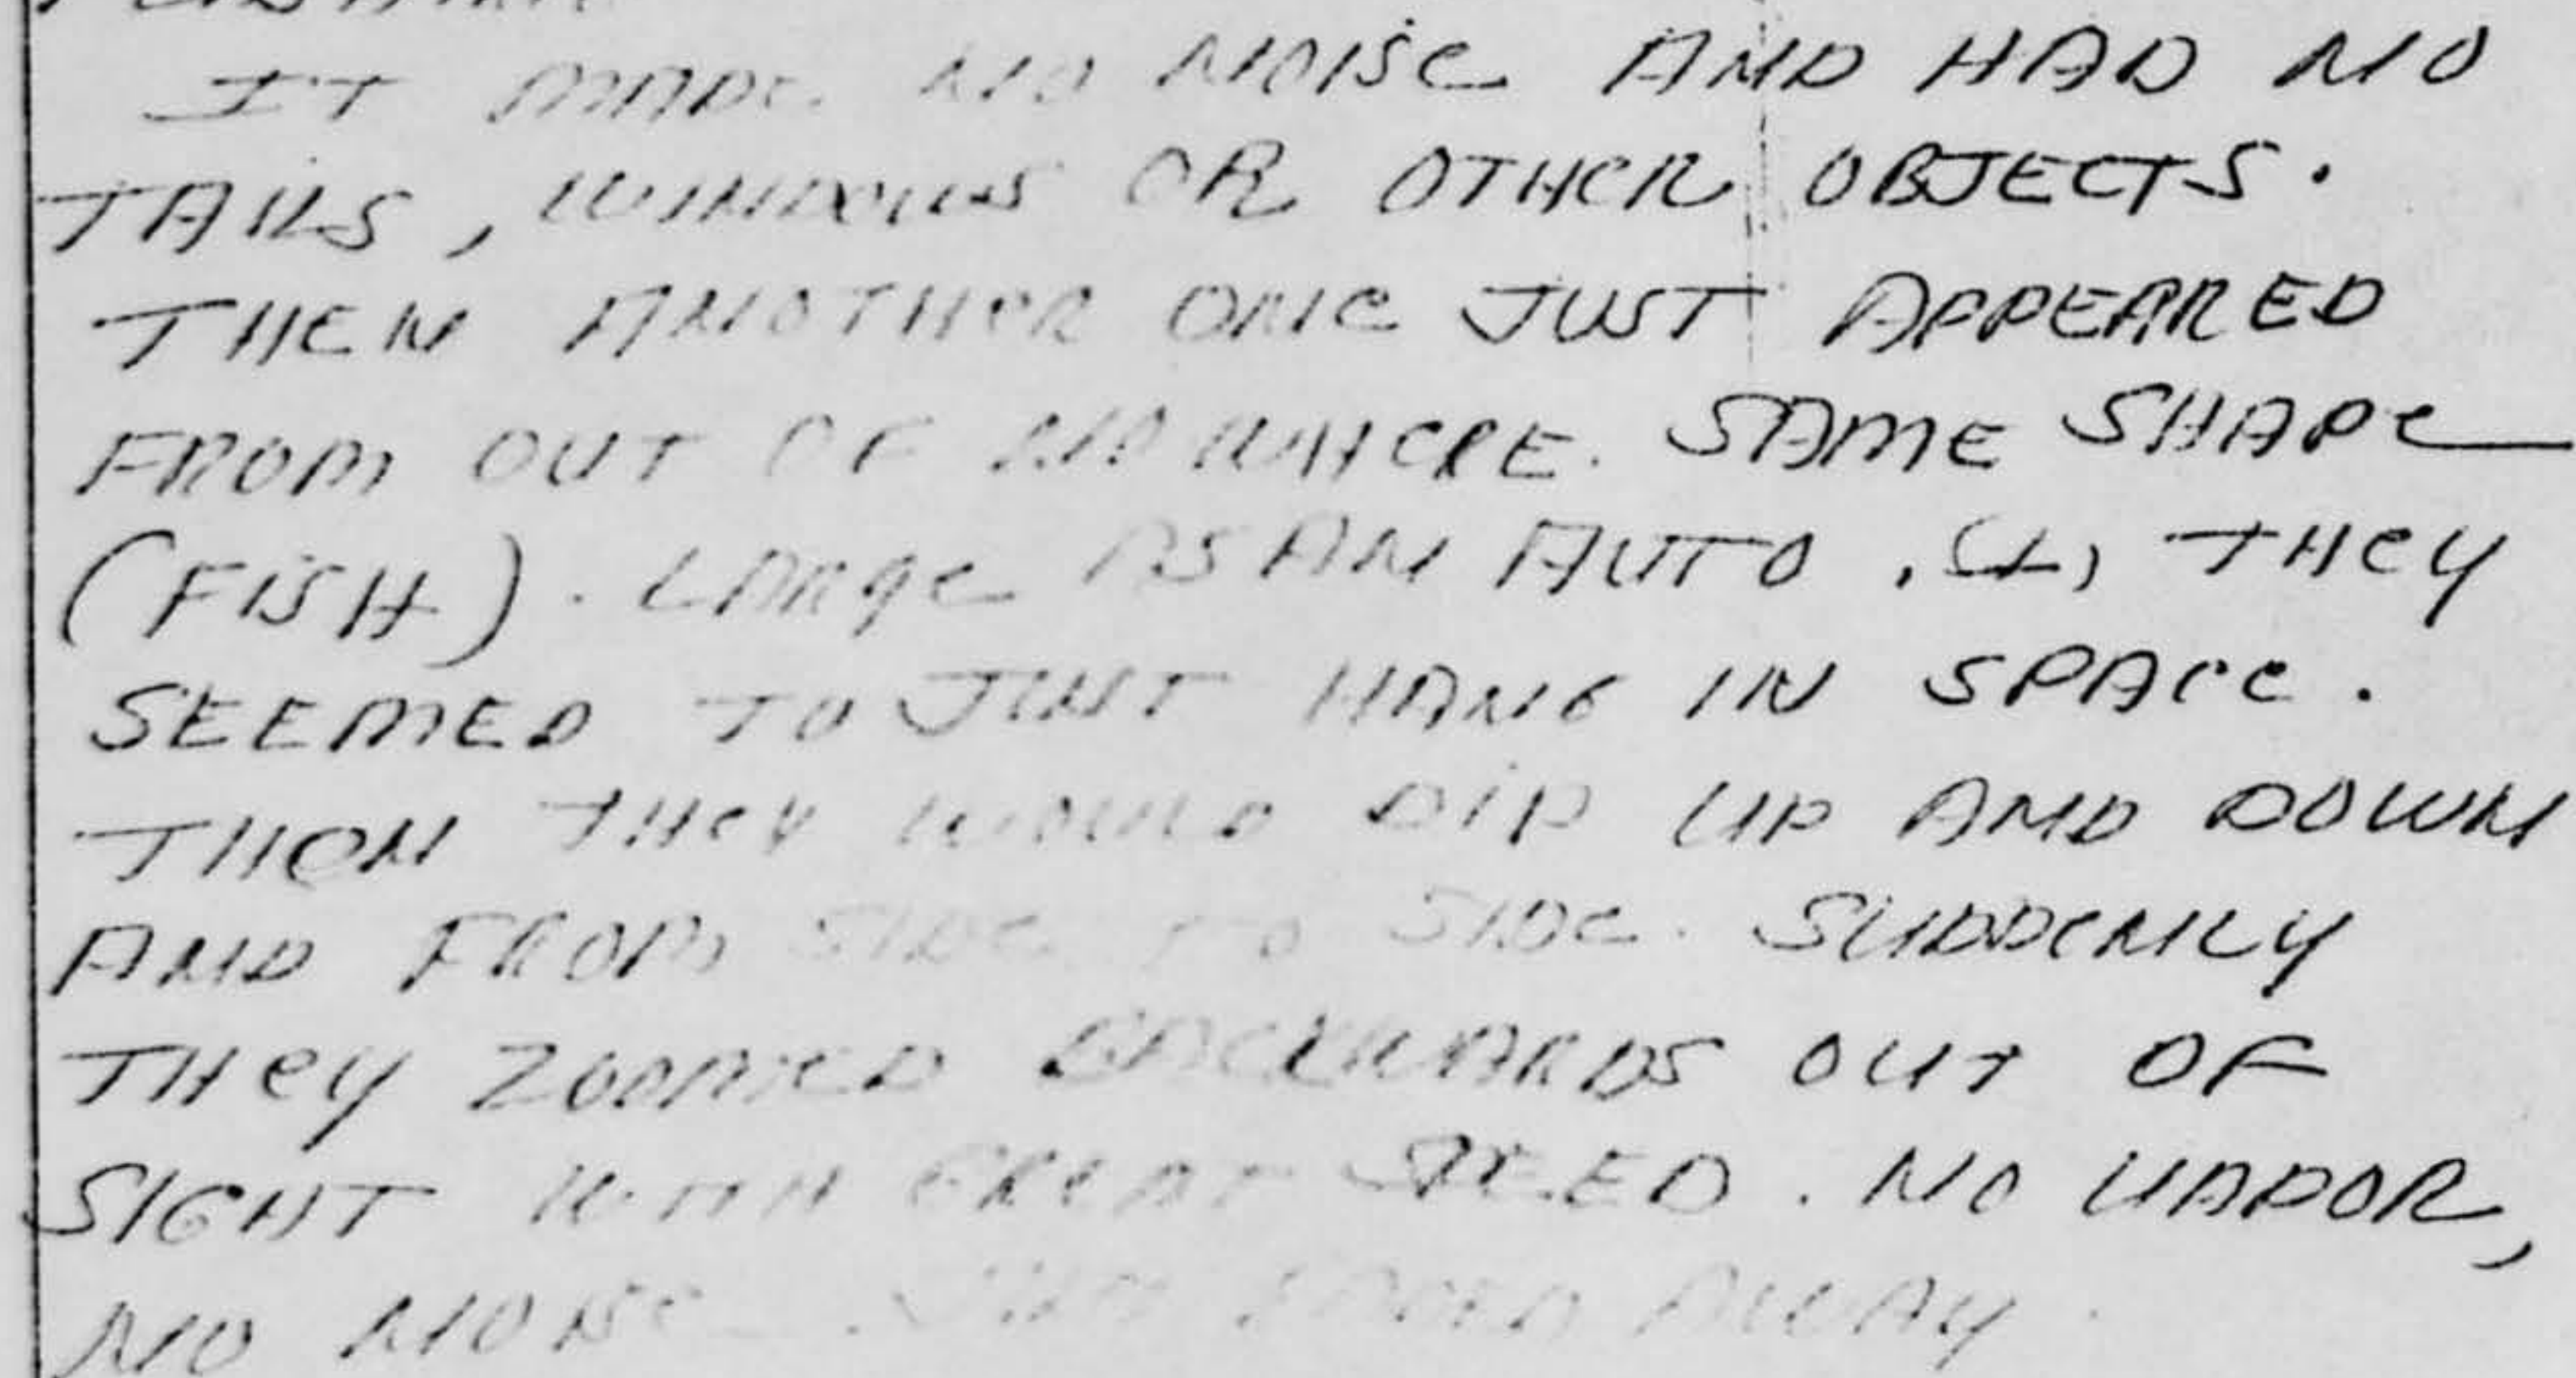 IT MADE NO NOISE AND HAD NO
TAILS, WINDOWS OR OTHER OBJECTS.
THEN ANOTHER ONE JUST APPEARED
FROM OUT OF NOWHERE. SAME SHAPE
(FISH). LARGE AS AN AUTO. (±) THEY
SEEMED TO JUST HANG IN SPACE.
THEN THEY WOULD DIP UP AND DOWN
AND FROM SIDE TO SIDE. SUDDENLY
THEY ZOOMED BACKWARDS OUT OF
SIGHT WITH GREAT SPEED. NO VAPOR,
NO NOISE. JUST AWAY.